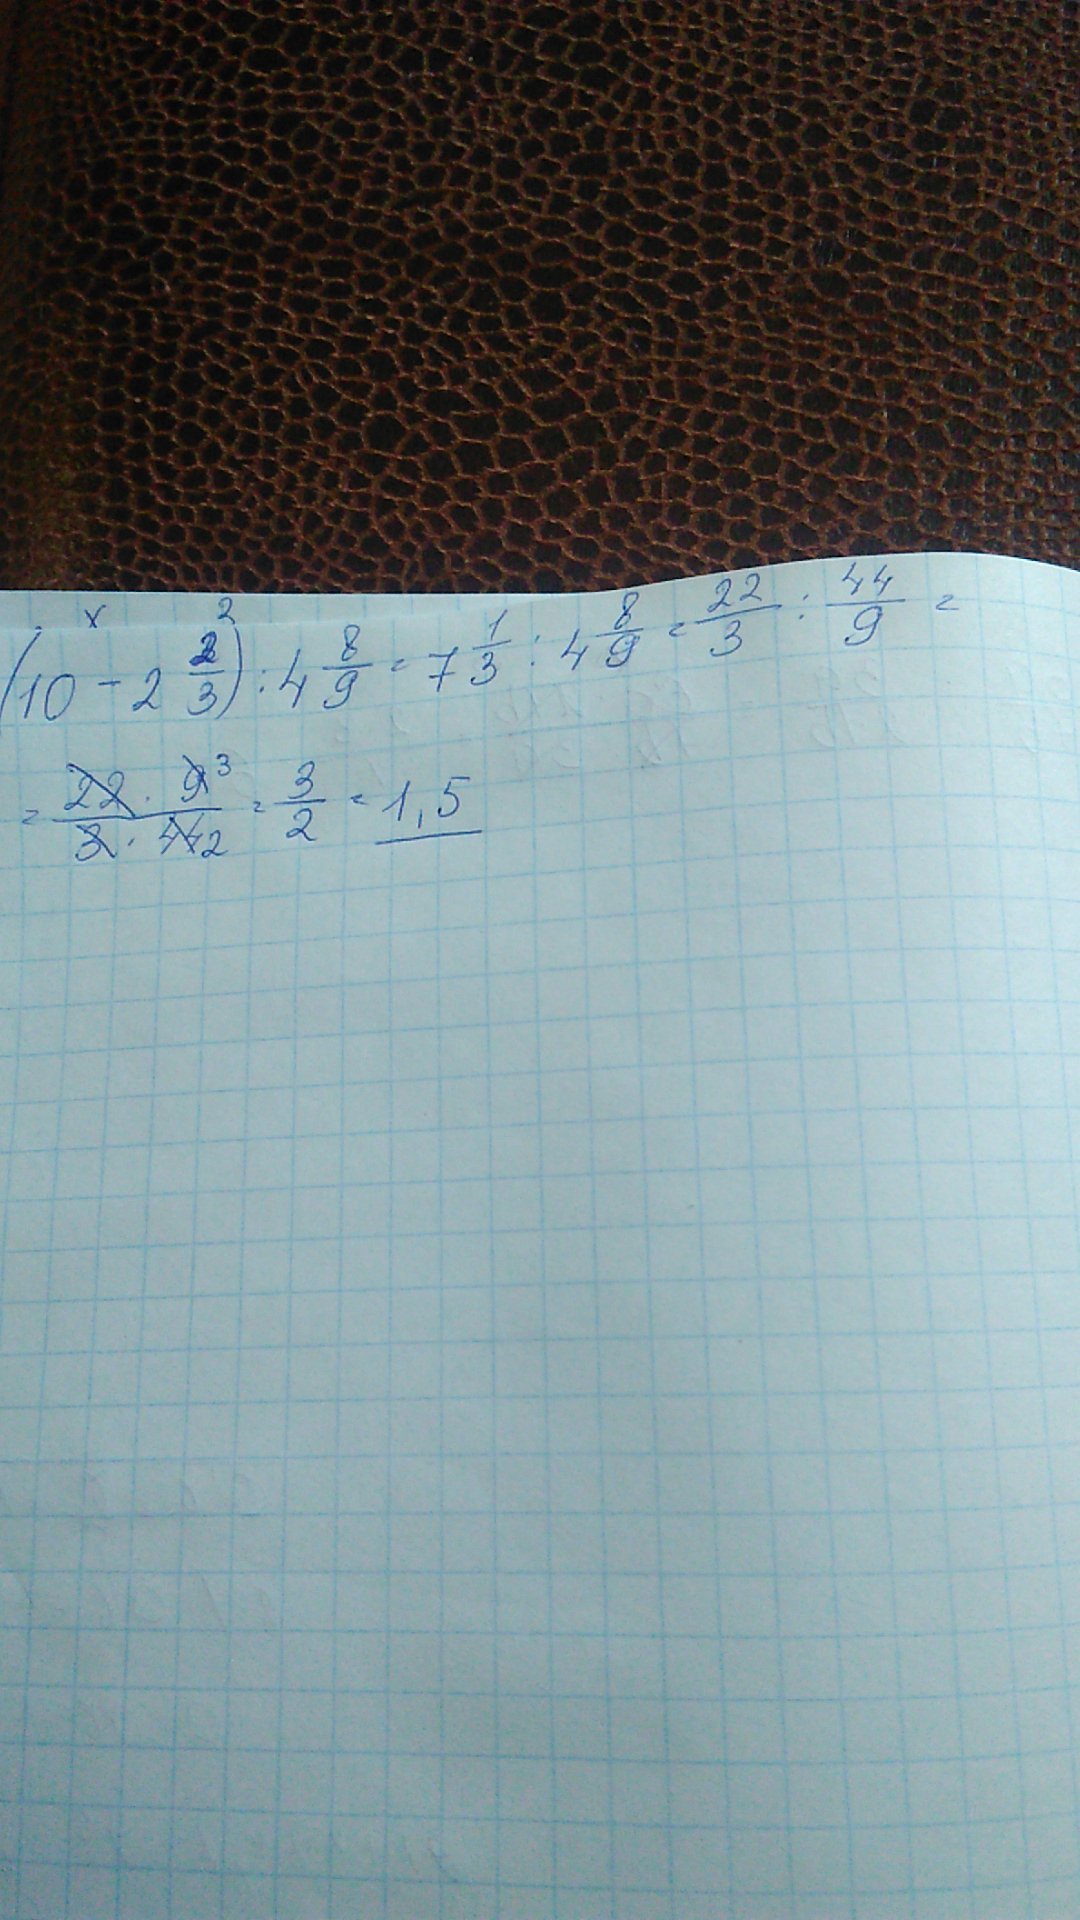 (10 - 2 2/3) : 4 8/9 = 7 1/3 : 4 8/9 = 22/3 : 44/9 =
= 22 · 9 3 / 3 · 44 2 = 3/2 = 1,5